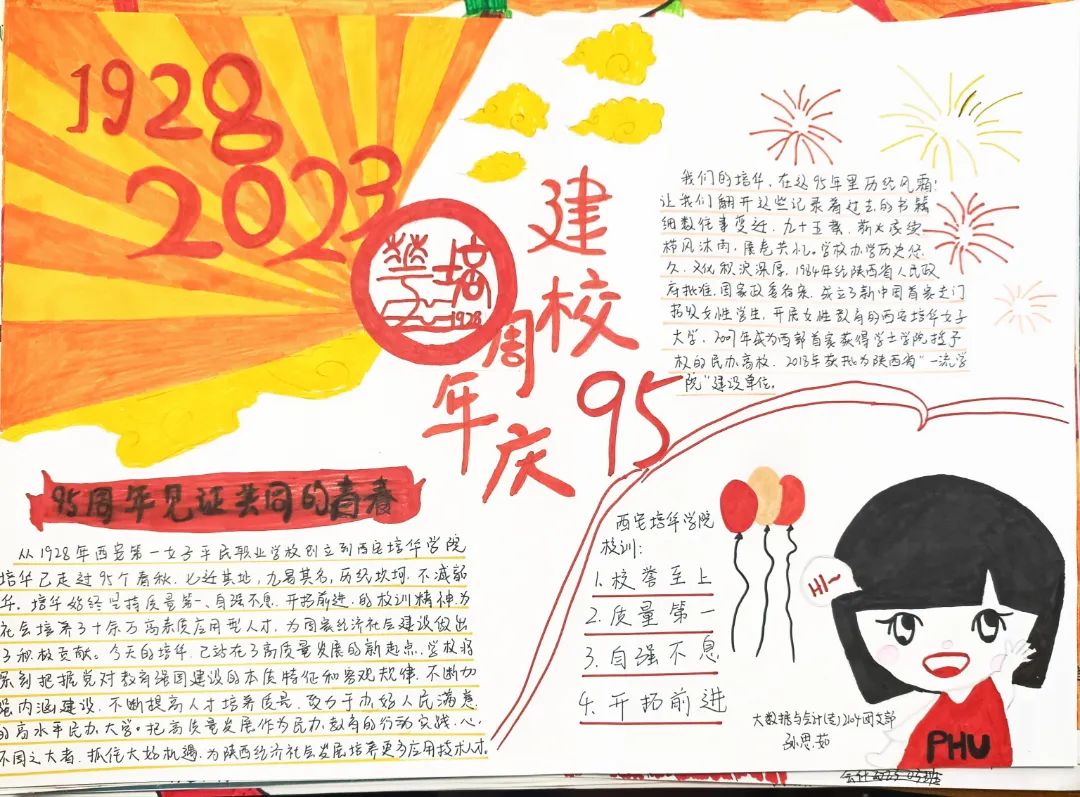 1928
2023
華培
1928
建校
95
周
年庆
我们的培华，在这95年里历经风霜！
让我们翻开这些记录着过去的书籍
细数往事变迁，九十五载，薪火传承
栉风沐雨，
学校办学历史悠
久，文化积淀深厚，1984年经陕西省人民政
府批准，国家教委备案，成立了新中国首家专门
招收女性学生，开展女性教育的西安培华女子
大学，2007年成为西部首家获得学士学位授予
权的民办高校，2018年获批为陕西省“一流学
院”建设单位。
95周年见证共同的青春
从1928年西安第一女子平民职业学校创立到西安培华学院
培华已走过95个春秋，七迁其址，九易其名，历经坎坷，不减韶
华。培华始终坚持质量第一、自强不息、开拓前进，的校训精神为
社会培养了十余万高素质应用型人才，为国家经济社会建设做出
了积极贡献。今天的培华，已站在了高质量发展的新起点，学校将
深刻把握党对教育强国建设的本质特征和客观规律，不断加
强内涵建设，不断提高人才培养质量，致力于办好人民满意
的高水平民办大学。把高质量发展作为民办教育的行动实践，心
不国之大者，抓住大好机遇，为陕西经济社会发展培养更多应用技术人才。
西安培华学院
校训：
1.校誉至上
2.质量第一
3.自强不息
4.开拓前进
Hi~
PHU
大数据与会计(专)2104团支部
孙思茹